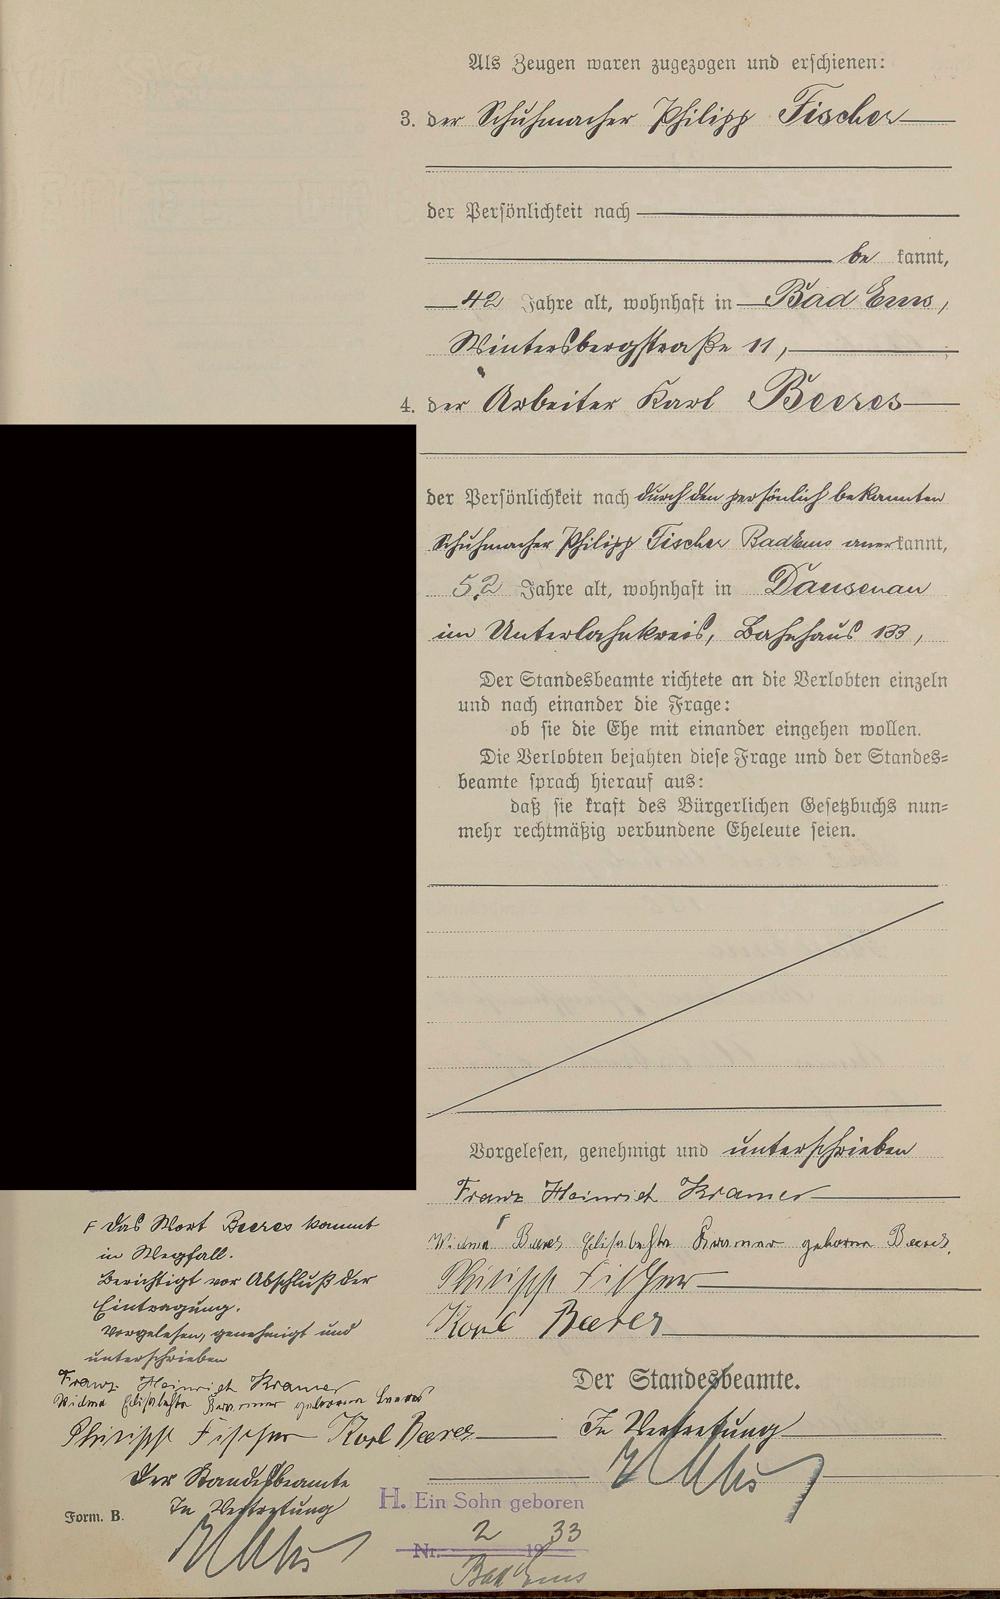 Als Zeugen waren zugezogen und erschienen:
3. der Schuhmacher Philipp Fischer
der Persönlichkeit nach
be kannt,
42 Jahre alt, wohnhaft in Bad Ems,
Wintersbergstraße 11,
4. der Arbeiter Karl Beeres
der Persönlichkeit nach durch den persönlich bekannten
Schuhmacher Philipp Fischer Bad Ems anerkannt,
52 Jahre alt, wohnhaft in Dausenau
im Unterlahnkreis, Bahnhaus 133,
Der Standesbeamte richtete an die Verlobten einzeln
und nach einander die Frage:
ob sie die Ehe mit einander eingehen wollen.
Die Verlobten bejahten diese Frage und der Standes=
beamte sprach hierauf aus:
daß sie kraft des Bürgerlichen Gesetzbuchs nun=
mehr rechtmäßig verbundene Eheleute seien.
Vorgelesen, genehmigt und unterschrieben
Franz Heinrich Kramer
Beeres Elisabetha Kramer geborene Beeres.
Philipp Fischer
Karl Beeres
Der Standesbeamte.
In Vertretung
F das Wort Beeres kommt
in Wegfall.
Berichtigt vor Abschluß der
Eintragung.
Vorgelesen, genehmigt und
unterschrieben
Franz Heinrich Kramer
Elisabetha Kramer geborene Beeres
Philipp Fischer Karl Beeres
Der Standesbeamte
In Vertretung
Form. B.
H. Ein Sohn geboren
Nr. 2 1933
Bad Ems